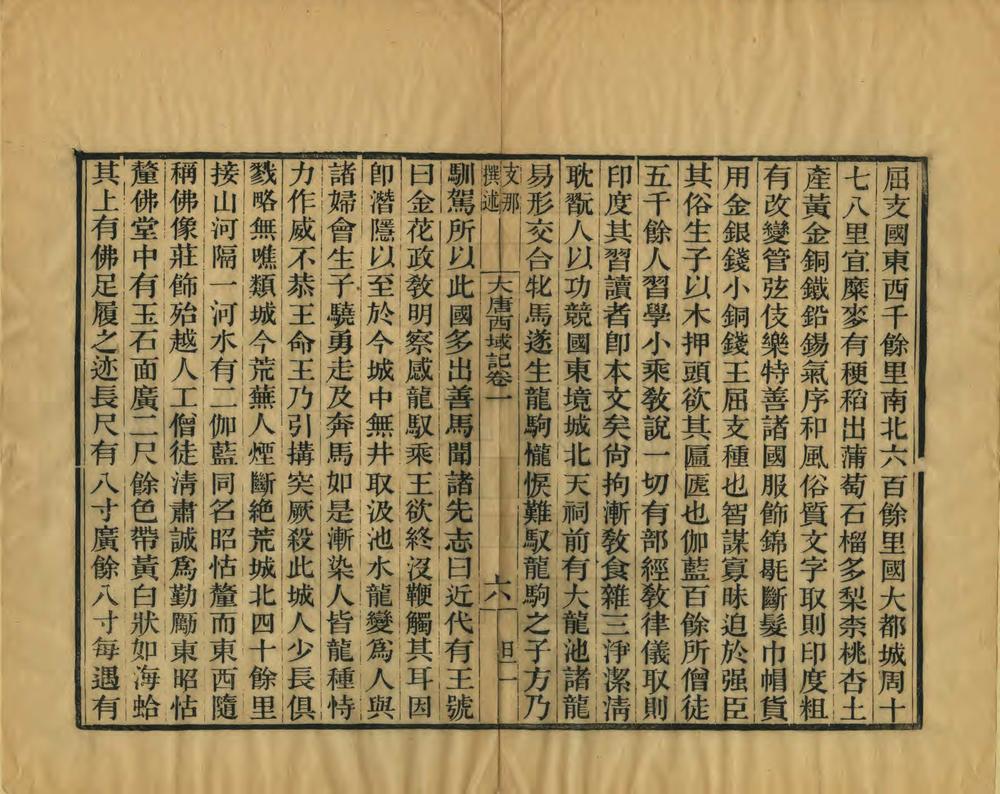 屈支國東西千餘里南北六百餘里國大都城周十
七八里宜糜麥有稉稻出蒲萄石榴多梨柰桃杏土
產黃金銅鐵鉛錫氣序和風俗質文字取則印度粗
有改變管弦伎樂特善諸國服飾錦毼斷髮巾帽貨
用金銀錢小銅錢王屈支種也智謀寡昧迫於强臣
其俗生子以木押頭欲其匾㔸也伽藍百餘所僧徒
五千餘人習學小乘敎說一切有部經敎律儀取則
印度其習讀者卽本文矣尙拘漸敎食雜三淨潔淸
耽翫人以功競國東境城北天祠前有大龍池諸龍
易形交合牝馬遂生龍駒𢤱悷難馭龍駒之子方乃
支那
撰述
大唐西域記卷一
六
日一
馴駕所以此國多出善馬聞諸先志曰近代有王號
曰金花政敎明察感龍馭乘王欲終沒鞭觸其耳因
卽潛隱以至於今城中無井取汲池水龍變爲人與
諸婦會生子驍勇走及奔馬如是漸染人皆龍種恃
力作威不恭王命王乃引搆突厥殺此城人少長俱
戮略無噍類城今荒蕪人煙斷絕荒城北四十餘里
接山河隔一河水有二伽藍同名昭怙釐而東西隨
稱佛像莊飾殆越人工僧徒淸肅誠爲勤勵東昭怙
釐佛堂中有玉石面廣二尺餘色帶黃白狀如海蛤
其上有佛足履之迹長尺有八寸廣餘八寸每遇有